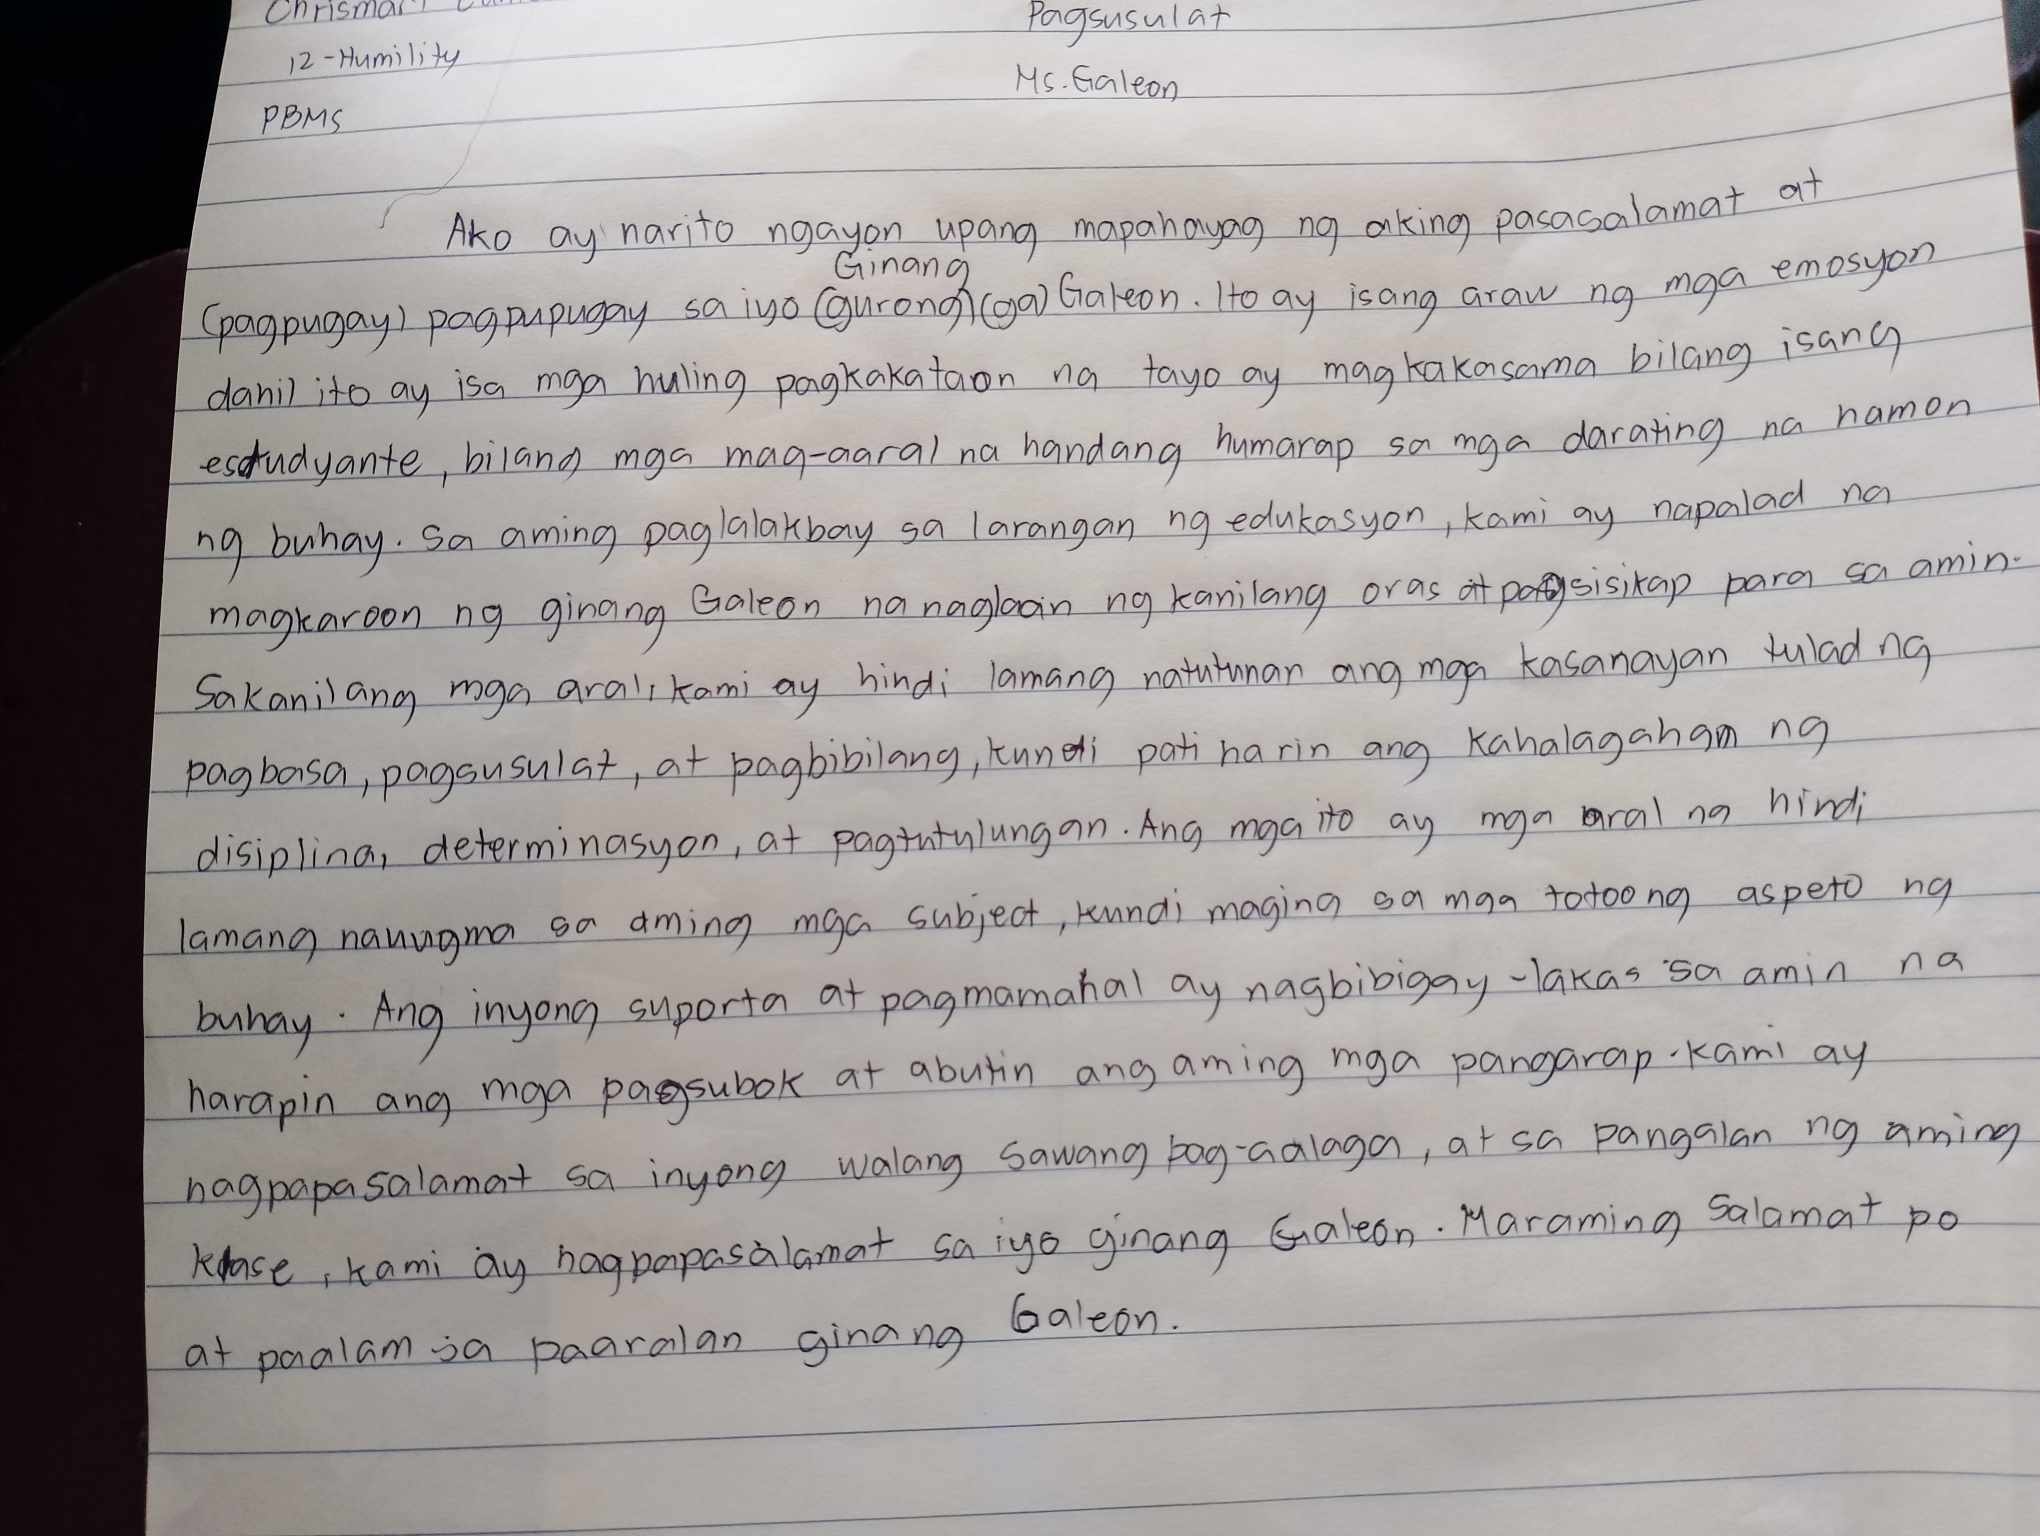 Pagsusulat
12-Humility
Ms. Galeon
PBMS
Ako ay narito ngayon upang mapahayag ng aking pasasalamat at
Ginang
(pagpugay) pagpupugay sa iyo (gurong) (ga) Galeon. Ito ay isang araw ng mga emosyon
dahil ito ay isa mga huling pagkakataon na tayo ay magkakasama bilang isang
estudyante, bilang mga mag-aaral na handang humarap sa mga darating na hamon
ng buhay. Sa aming paglalakbay sa larangan ng edukasyon, kami ay napalad na
magkaroon ng ginang Galeon na naglaain ng kanilang oras at pagsisikap para sa amin.
Sakanilang mga aral, kami ay hindi lamang natutunan ang mga kasanayan tulad ng
pagbasa, pagsusulat, at pagbibilang, kundi pati na rin ang kahalagahan ng
disiplina, determinasyon, at pagtutulungan. Ang mga ito ay mga aral na hindi
lamang sa aming mga subject, kundi maging sa mga totoong aspeto ng
buhay. Ang inyong suporta at pagmamahal ay nagbibigay-lakas sa amin na
harapin ang mga pagsubok at abutin ang aming mga pangarap. Kami ay
nagpapasalamat sa inyong walang sawang pag-aalaga, at sa pangalan ng aming
klase, kami ay nagpapasalamat sa iyo ginang Galeon. Maraming Salamat po
at paalam sa paaralan ginang Galeon.